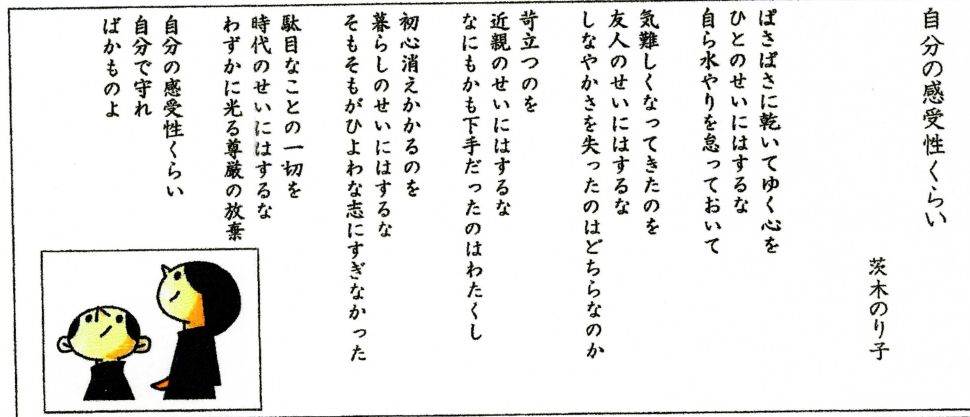 自分の感受性くらい
茨木のり子
ぱさぱさに乾いてゆく心を
ひとのせいにはするな
自ら水やりを怠っておいて
気難しくなってきたのを
友人のせいにはするな
しなやかさを失ったのはどちらなのか
苛立つのを
近親のせいにはするな
なにもかも下手だったのはわたくし
初心消えかかるのを
暮らしのせいにはするな
そもそもがひよわな志にすぎなかった
駄目なことの一切を
時代のせいにはするな
わずかに光る尊厳の放棄
自分の感受性くらい
自分で守れ
ばかものよ